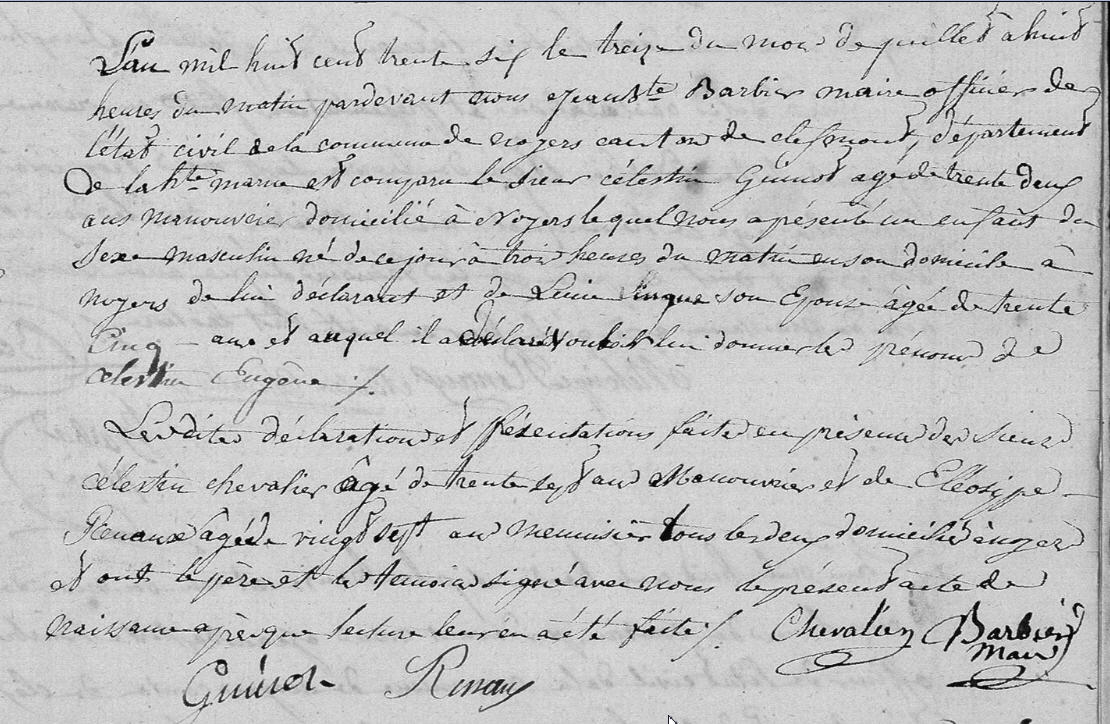 L'an mil huit cent trente six le treize du mois de juillet à huit
heures du matin pardevant nous jean bte Barbier maire officier de
l'état civil de la commune de noyers canton de clefmont, département
de la hte marne est comparu le sieur célestin Guinot agé de trente deux
ans manouvrier domicilié à Noyers lequel nous a présenté un enfant du
sexe masculin né de ce jour à trois heures du matin en son domicile à
noyers de lui déclarant et de son Epouse âgée de trente
Cinq - ans et auquel il a déclaré vouloir lui donner les prénoms de
célestin Eugène ./.
Les dites déclarations et présentations faites en présence des sieurs
célestin chevalier âgé de trente sept ans Manouvrier et de -
Renaux âgé de vingt sept ans menuisier tous les deux domiciliés à noyers
et ont le père et les temoins signé avec nous le présent acte de
naissance après que lecture leur en a été faite ./. Chevalier Barbier
Guinot Renaux maire